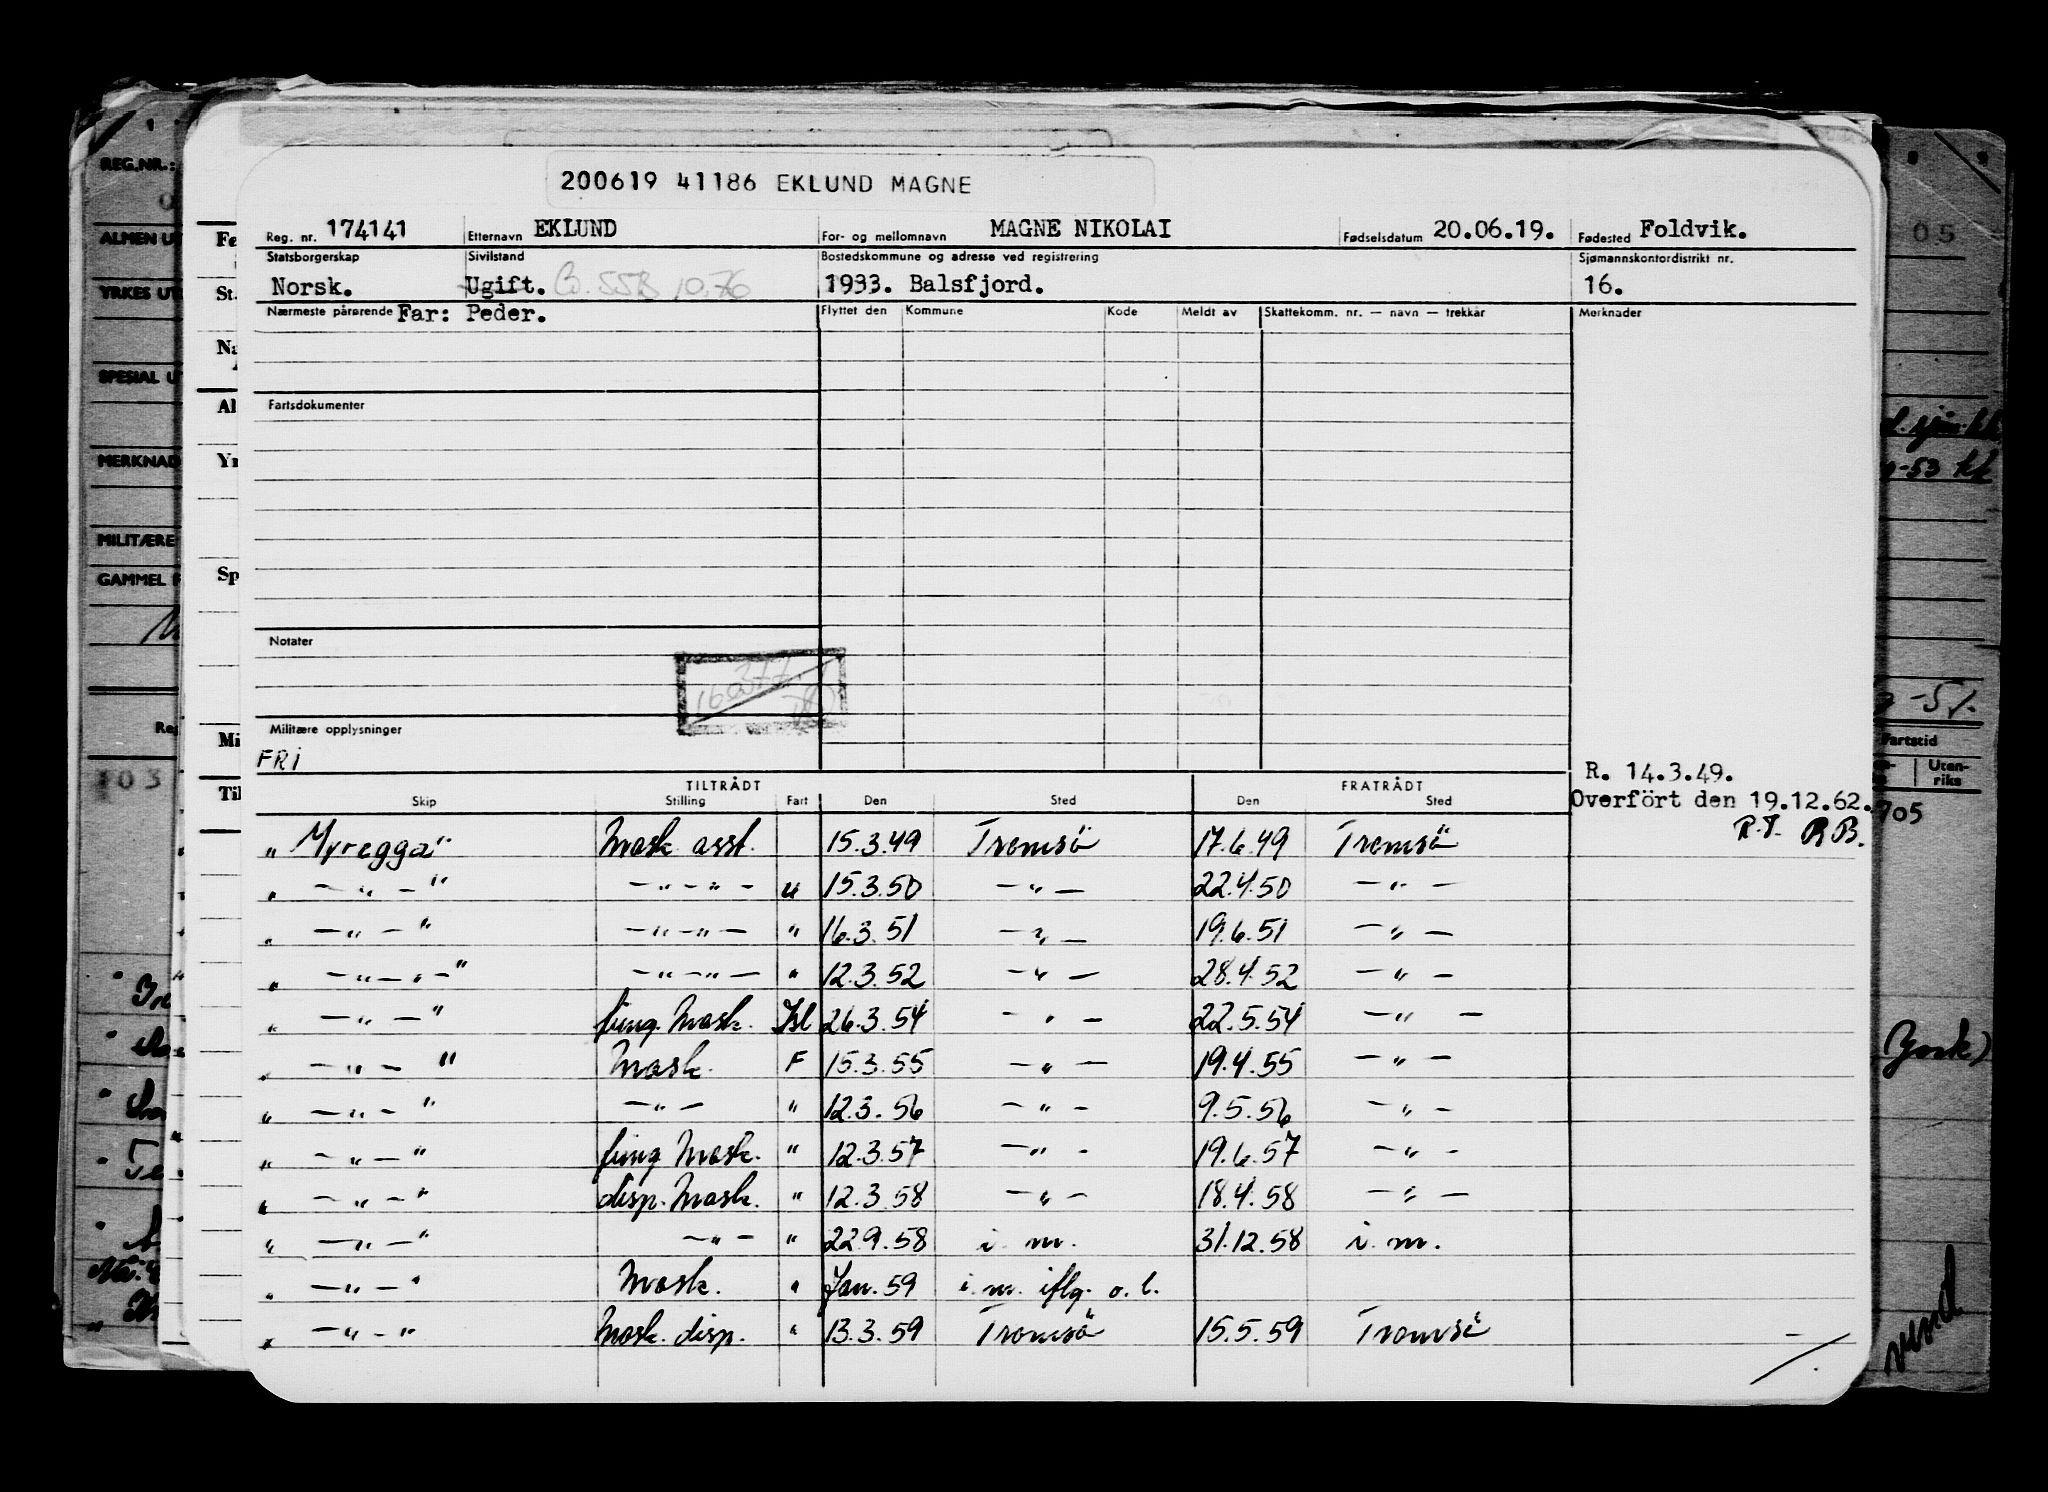 200619 41186 EKLUND MAGNE
Reg. nr. 174141 Etternavn EKLUND For- og mellomnavn MAGNE NIKOLAI Fødselsdatum 20.06.19. Fødested Foldvik.
Statsborgerskap Sivilstand Bostedskommune og adresse ved registrering Sjømannskontordistrikt nr.
Norsk. Ugift. 1933. Balsfjord. 16.
Nærmeste pårørende Far: Peder. Flyttet den Kommune Kode Meldt av Skattekomm. nr. — navn — trekkår Merknader
Fartsdokumenter
Notater
Militære opplysninger
FRI
R. 14.3.49.
Overført den 19.12.62.
R.T. RB.
TILTRÅDT FRATRÅDT
Skip Stilling Fart Den Sted Den Sted
„ Myregga" Mask asst. 15.3.49 Tromsö 17.6.49 Tromsö
„ — „ — " — „ — „ — u 15.3.50 — „ — 22.4.50 — „ —
„ — „ — " — „ — „ — " 16.3.51 — „ — 19.6.51 — „ —
„ — „ — „ — " — „ — „ — " 12.3.52 — „ — 28.4.52 — „ —
„ — „ — " fung. Mask. Isl 26.3.54 — „ — 22.5.54 — „ —
„ — „ — " Mask. F 15.3.55 — „ — 19.4.55 — „ —
„ — „ — " — „ — " 12.3.56 — „ — 9.5.56 — „ —
„ — „ — " fung Mask. " 12.3.57 — „ — 19.6.57 — „ —
„ — „ — " disp. Mask. " 12.3.58 — „ — 18.4.58 — „ —
„ — „ — " — „ — " 22.9.58 i. m. 31.12.58 i. m.
„ — „ — " Mask. " Jan. 59 i. m. iflg. o. l.
„ — „ — " Mask. disp. " 13.3.59 Tromsö 15.5.59 Tromsö
REG.NR.:
ALMEN UT
YRKES UT
SPESIAL U
MERKNAD
MILITÆRE
GAMMEL
103
Fe
St.
Na
Al
Yr
Sp
Mi
Til
05
-53
-51.
Fartstid
Uten-
riks
705
vend